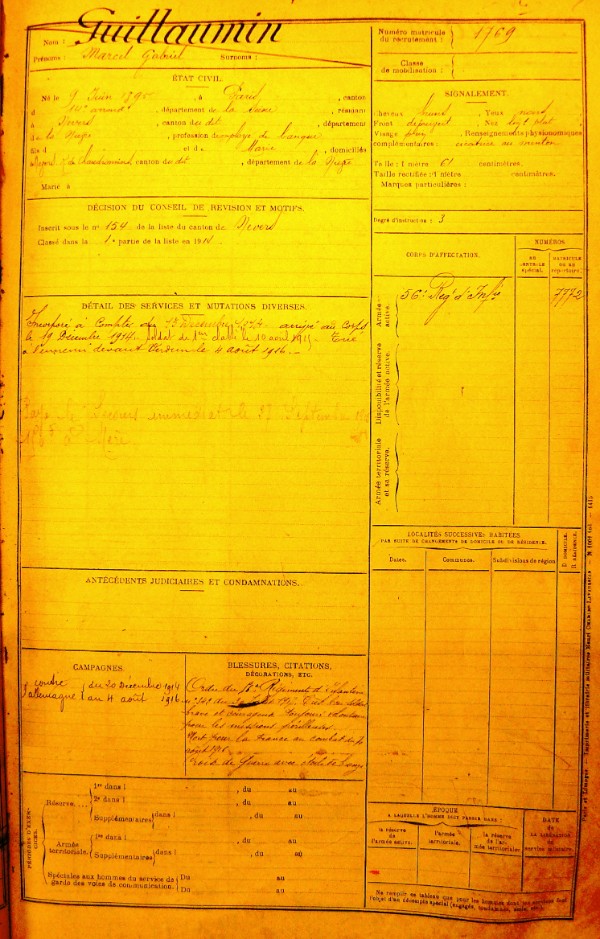 Guillaumin
Nom :
Prénoms : Marcel Gabriel Surnoms :
Numéro matricule du recrutement : 1769
Classe de mobilisation :
ÉTAT CIVIL.
Né le 9 Juin à Paris, canton
, département de la Seine, résidant
à Nevers, canton du dit, département
de la Nièv, profession d'employé de banque
fils d et d Marie, domiciliés
canton du dit, département de la Nièv
Marié à
SIGNALEMENT.
Cheveux Yeux
Front Nez
Visage Renseignements physionomiques
complémentaires : cicatrice au menton
Taille : 1 mètre 61 centimètres.
Taille rectifiée : 1 mètre centimètres.
Marques particulières :
Degré d'instruction : 3
DÉCISION DU CONSEIL DE RÉVISION ET MOTIFS.
Inscrit sous le n° 154 de la liste du canton de Nevers
Classé dans la 1e partie de la liste en 191
CORPS D'AFFECTATION.
NUMÉROS
AU CONTRÔLE spécial.
MATRICULE OU AU répertoire.
Armée active.
56e Reg. d'Inf.ie
7772
Disponibilité et réserve de l'armée active.
Armée territoriale et sa réserve.
DÉTAIL DES SERVICES ET MUTATIONS DIVERSES.
Incorporé à Compter du 15 Décembre 1914 arrivé au Corps
le 19 Décembre 1914. Soldat de 1ère classe le 10 août 1915. Tué
à l'ennemi devant Verdun le 4 août 1916.
Secours immédiat le 27 Septembre
150f à Mère
LOCALITÉS SUCCESSIVES HABITÉES
PAR SUITE DE CHANGEMENTS DE DOMICILE OU DE RÉSIDENCE.
Dates. Communes. Subdivisions de région D. DOMICILE. R. RÉSIDENCE.
ANTÉCÉDENTS JUDICIAIRES ET CONDAMNATIONS.
CAMPAGNES.
contre l'allemagne
du 20 Décembre 1914
au 4 août 1916
BLESSURES, CITATIONS,
DÉCORATIONS, ETC.
Ordre du Régiment d'Infanterie
brave et toujours volontaire
pour les missions périlleuses.
Mort pour la France au combat du
août 1916
Croix de Guerre avec Étoile
PÉRIODES D'EXERCICES.
Réserve
1re dans l , du au
2e dans l , du au
Supplémentaires dans l , du au
Armée territoriale.
1re dans l , du au
Supplémentaires dans l , du au
Spéciales aux hommes du service de garde des voies de communication.
Du au
Du au
ÉPOQUE
A LAQUELLE L'HOMME DOIT PASSER DANS :
la réserve de l'armée active.
l'armée territoriale.
la réserve de l'armée territoriale.
DATE
DE LA LIBÉRATION DU service militaire.
Ne remplir ce tableau que pour les hommes dont les services font
l'objet d'un décompte spécial (engagés, etc.)
Paris et Limoges. — Imprimerie et librairie militaires Henri CHARLES-LAVAUZELLE